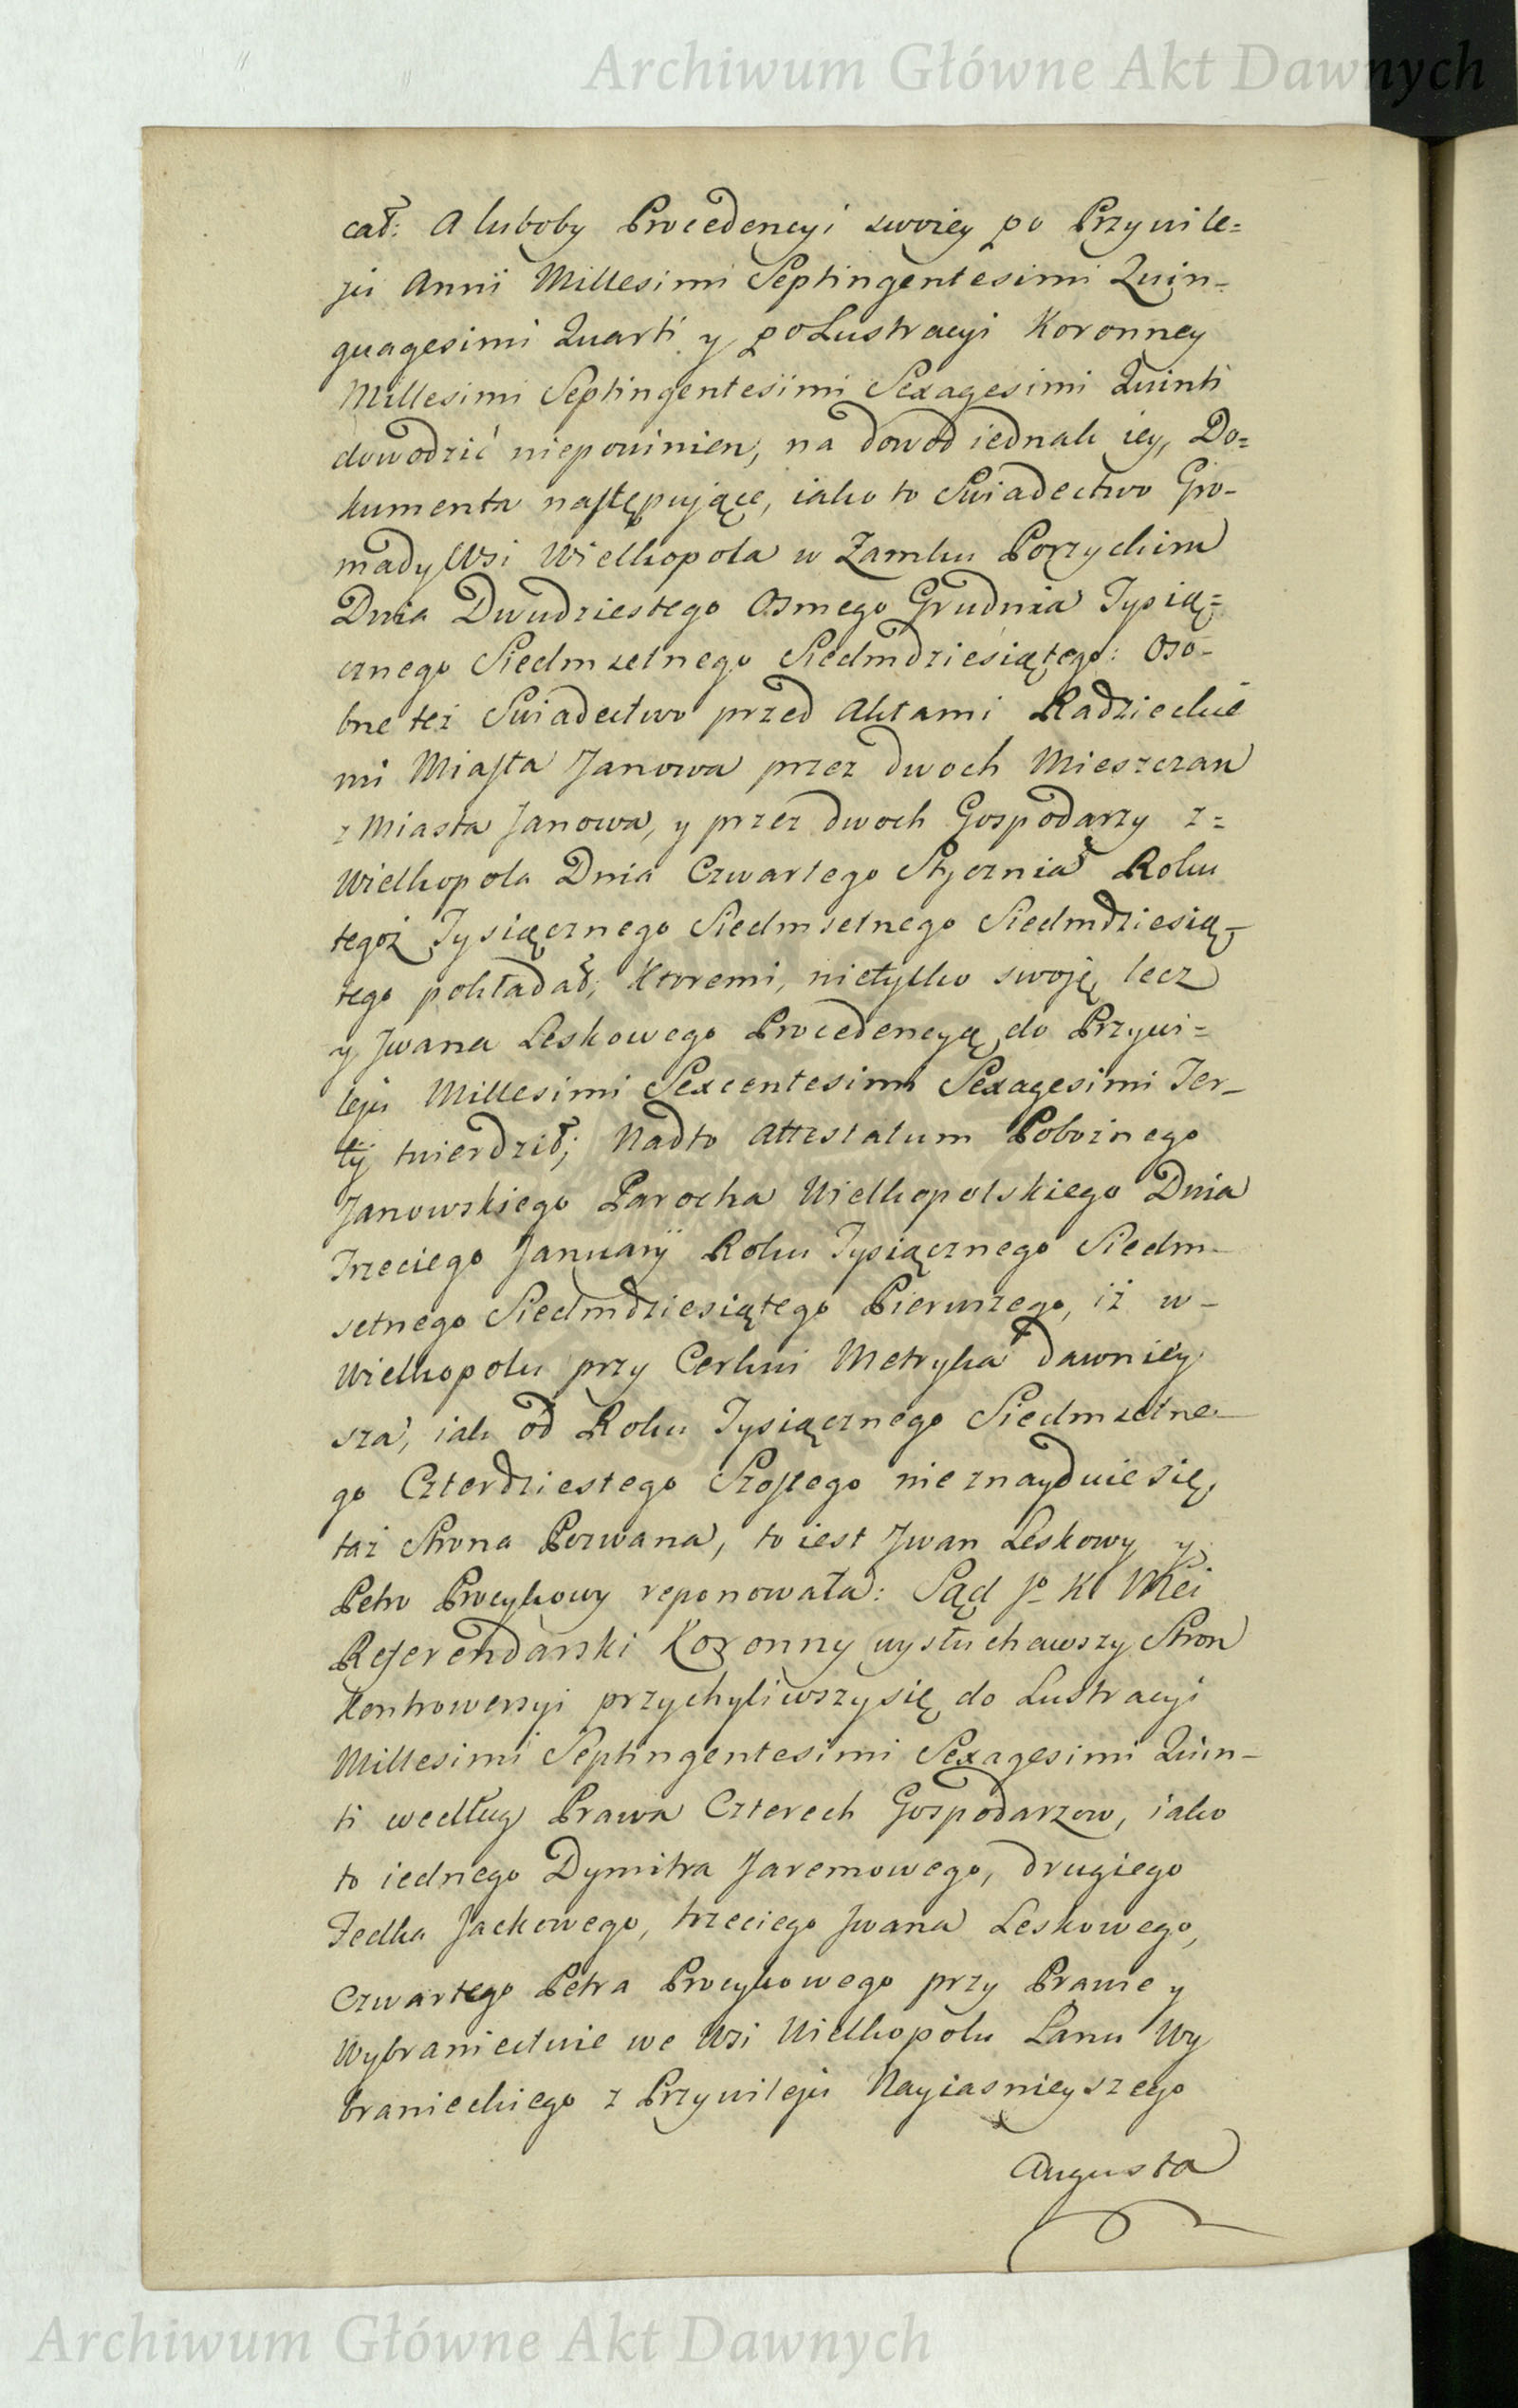 Archiwum Główne Akt Dawnych
cał: A luboby Procedencyi swoiey po Przywile=
ju Annii Millesimi Septingentesimi Quin-
quagesimi Quarti y po Lustracyi Koronney
Millesimi Septingentesimi Sexagesimi Quinti
dowodzić niepowinien, na dowod iednak iey, Do=
kumenta następuiące, iako to Swiadectwo Gro-
mady Wsi Wielkopola w Zamku Porzyckim
Dnia Dwudziestego Osmego Grudnia Tysią=
cznego Siedmsetnego Siedmdziesiątego: Oso-
bne też Swiadectwo przed Aktami Radzieckie
mi Miasta Janowa przez dwoch Mieszczan
z Miasta Janowa, y przez dwoch Gospodarzy z=
Wielkopola Dnia Czwartego Stycznia Roku
tegoż Tysiącznego Siedmsetnego Siedmdziesią-
tego pokładał; Ktoremi, nietylko swoię lecz
y Jwana Leskowego Procedencyą do Przywi=
leju Millesimi Sexcentesimi Sexagesimi Ter-
tij twierdził; Nadto Attestatum Pobożnego
Janowskiego Parocha Wielkopolskiego Dnia
Trzeciego Januarij Roku Tysiącznego Siedm-
setnego Siedmdziesiątego Pierwszego, iż w-
Wielkopolu przy Cerkwi Metryka dawniey
sza, iak od Roku Tysiącznego Siedmsetne-
go Czterdziestego Szostego nie znayduie się,
taż Strona Pozwana, to iest Jwan Leskowy y
Petro Procykowy reponowała: Sąd Jo K Mci
Referendarski Koronny wysłuchawszy Stron
Kontrowersyi przychyliwszy się do Lustracyi
Millesimi Septingentesimi Sexagesimi Quin-
ti według Prawa Czterech Gospodarzow, iako
to iednego Dymitra Jaremowego, drugiego
Fedka Jackowego, trzeciego Jwana Leskowego,
Czwartego Petra Procykowego przy Prawie y
Wybraniectwie we Wsi Wielkopolu Łanu Wy
branieckiego z Przywileju Nayiasnieyszego
Augusta
Archiwum Główne Akt Dawnych